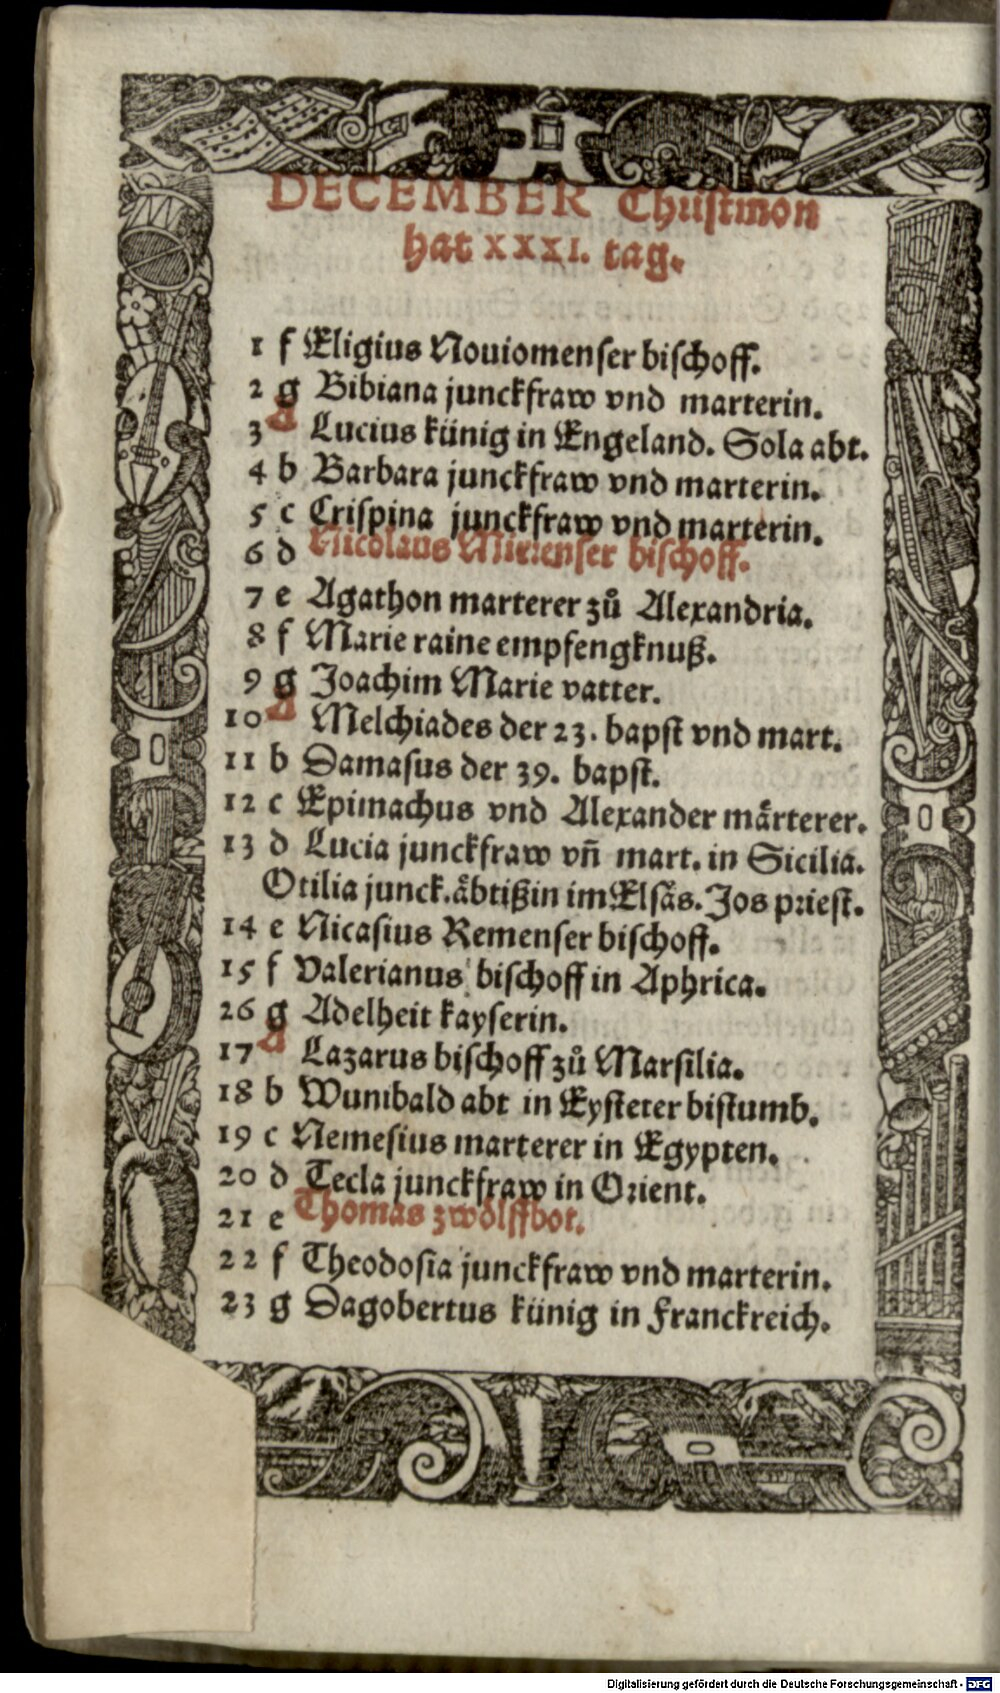 DECEMBER Christmon
hat XXXI. tag.
1 f Eligius Nouiomenser bischoff.
2 g Bibiana junckfraw vnd marterin.
3 A Lucius künig in Engeland. Sola abt.
4 b Barbara junckfraw vnd marterin.
5 c Crispina junckfraw vnd marterin.
6 d Nicolaus Mirrenser bischoff.
7 e Agathon marterer zů Alexandria.
8 f Marie raine empfengknuß.
9 g Joachim Marie vatter.
10 A Melchiades der 23. bapst vnd mart.
11 b Damasus der 39. bapst.
12 c Epimachus vnd Alexander mårterer.
13 d Lucia junckfraw vñ mart. in Sicilia.
Otilia junck.åbtißin im Elsås. Jos priest.
14 e Nicasius Remenser bischoff.
15 f Valerianus bischoff in Aphrica.
26 g Adelheit kayserin.
17 A Lazarus bischoff zů Marsilia.
18 b Wunibald abt in Eysteter bistumb.
19 c Nemesius marterer in Egypten.
20 d Tecla junckfraw in Orient.
21 e Thomas zwölffbot.
22 f Theodosia junckfraw vnd marterin.
23 g Dagobertus künig in Franckreich.
Digitalisierung gefördert durch die Deutsche Forschungsgemeinschaft - DFG